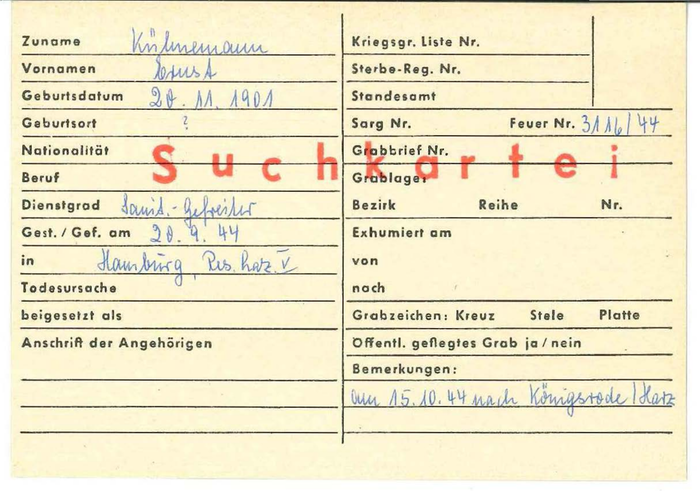 Zuname Kühnemann
Vornamen Ernst
Geburtsdatum 20.11.1901
Geburtsort ?
Nationalität
Beruf
Dienstgrad Sanit.-Gefreiter
Gest. / Gef. am 20.9.44
in Hamburg, Res. Laz. V
Todesursache
beigesetzt als
Anschrift der Angehörigen
Suchkartei
Kriegsgr. Liste Nr.
Sterbe-Reg. Nr.
Standesamt
Sarg Nr. Feuer Nr. 3116/44
Grabbrief Nr.
Grablage
Bezirk Reihe Nr.
Exhumiert am
von
nach
Grabzeichen: Kreuz Stele Platte
Öffentl. geflegtes Grab ja / nein
Bemerkungen:
am 15.10.44 nach Königsrode / Harz